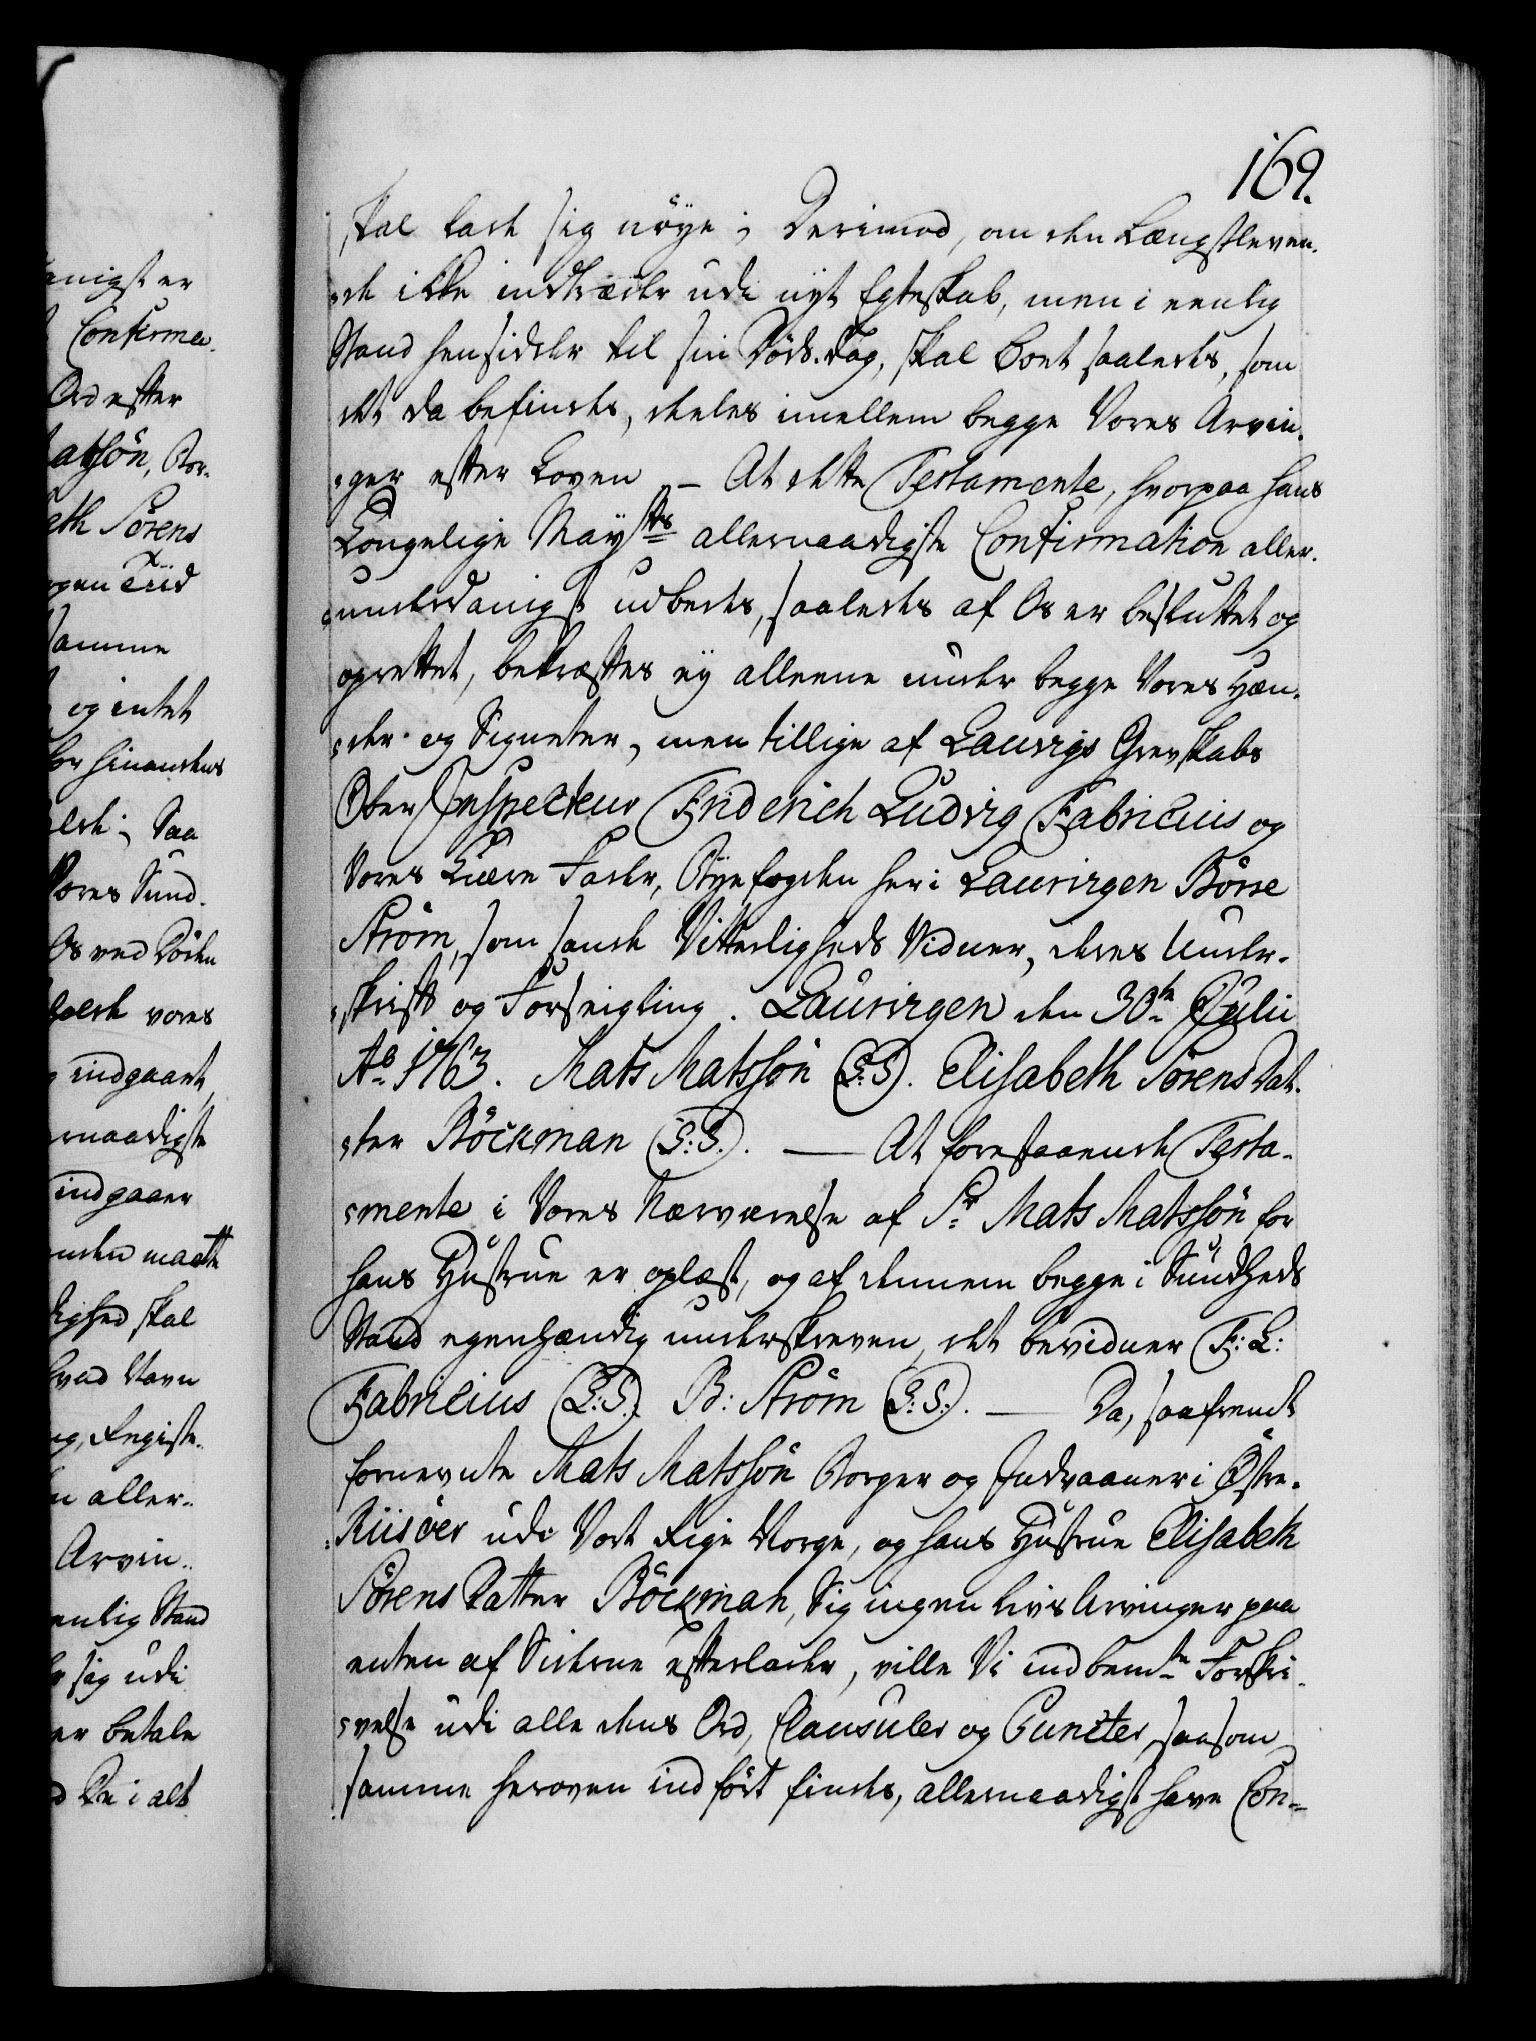 169.
skal lade sig nöye; Derimod, om den Længstleven-
-de ikke indtræder udi nyt Egteskab, men i eenlig
Stand hensidder til sin Döds-Dag, skal Boet saaledes, som
det da befindes, deeles imellem begge Vores Arvin-
-ger efter Loven — At dette Testamente, hvorpaa Hans
Kongelige Mayst:s allernaadigste Confirmation aller-
-underdanigst udbedes, saaledes af Os er besluttet og
oprettet, bekræftes ey alleene under begge Vores Hæn-
-der og Signeter, men tillige af Laurvigs Grevskabs
Ober Inspecteur Friderich Ludvig Fabricius og
Vores Kiære Fader, Byefogden her i Laurvigen Börre
Ström, som sande Vitterligheds Vidner, deres Under-
-skrift og Forseigling. Laurvigen den 30te Julii
Ao 1763. Mats Matssön (L:S). Elisabeth Sörens Dat-
-ter Böckman (L:S:). — At forestaaende Testa-
-mente i Vores Nærværelse af Sr Mats Matssön for
hans Hustrue er oplæst, og af dennem begge i Sundheds
Stand egenhændig underskreven, det bevidner F: L:
Fabricius (L:S:) B: Ström (L:S:). — Da, saafremt
fornevnte Mats Matssön Borger og Indvaaner i Östre-
-Riisöer udi Vort Rige Norge, og hans Hustrue Elisabeth
Sörens Datter Böckman, Sig ingen Livs Arvinger paa
enten af Siderne efterlader, ville Vi indbemte Forskri-
-velse udi alle dens Ord, Clausuler og Puncter, saasom
samme heroven indfört findes, allernaadigst have Con-